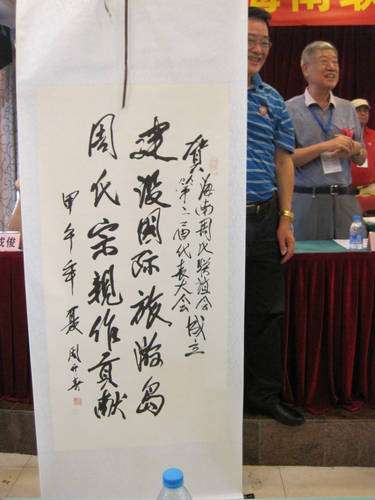 海南联
贺海南周氏联谊会成立
第二届代表大会
建设国际旅游岛
周氏宗亲作贡献
甲午年夏周
成俊